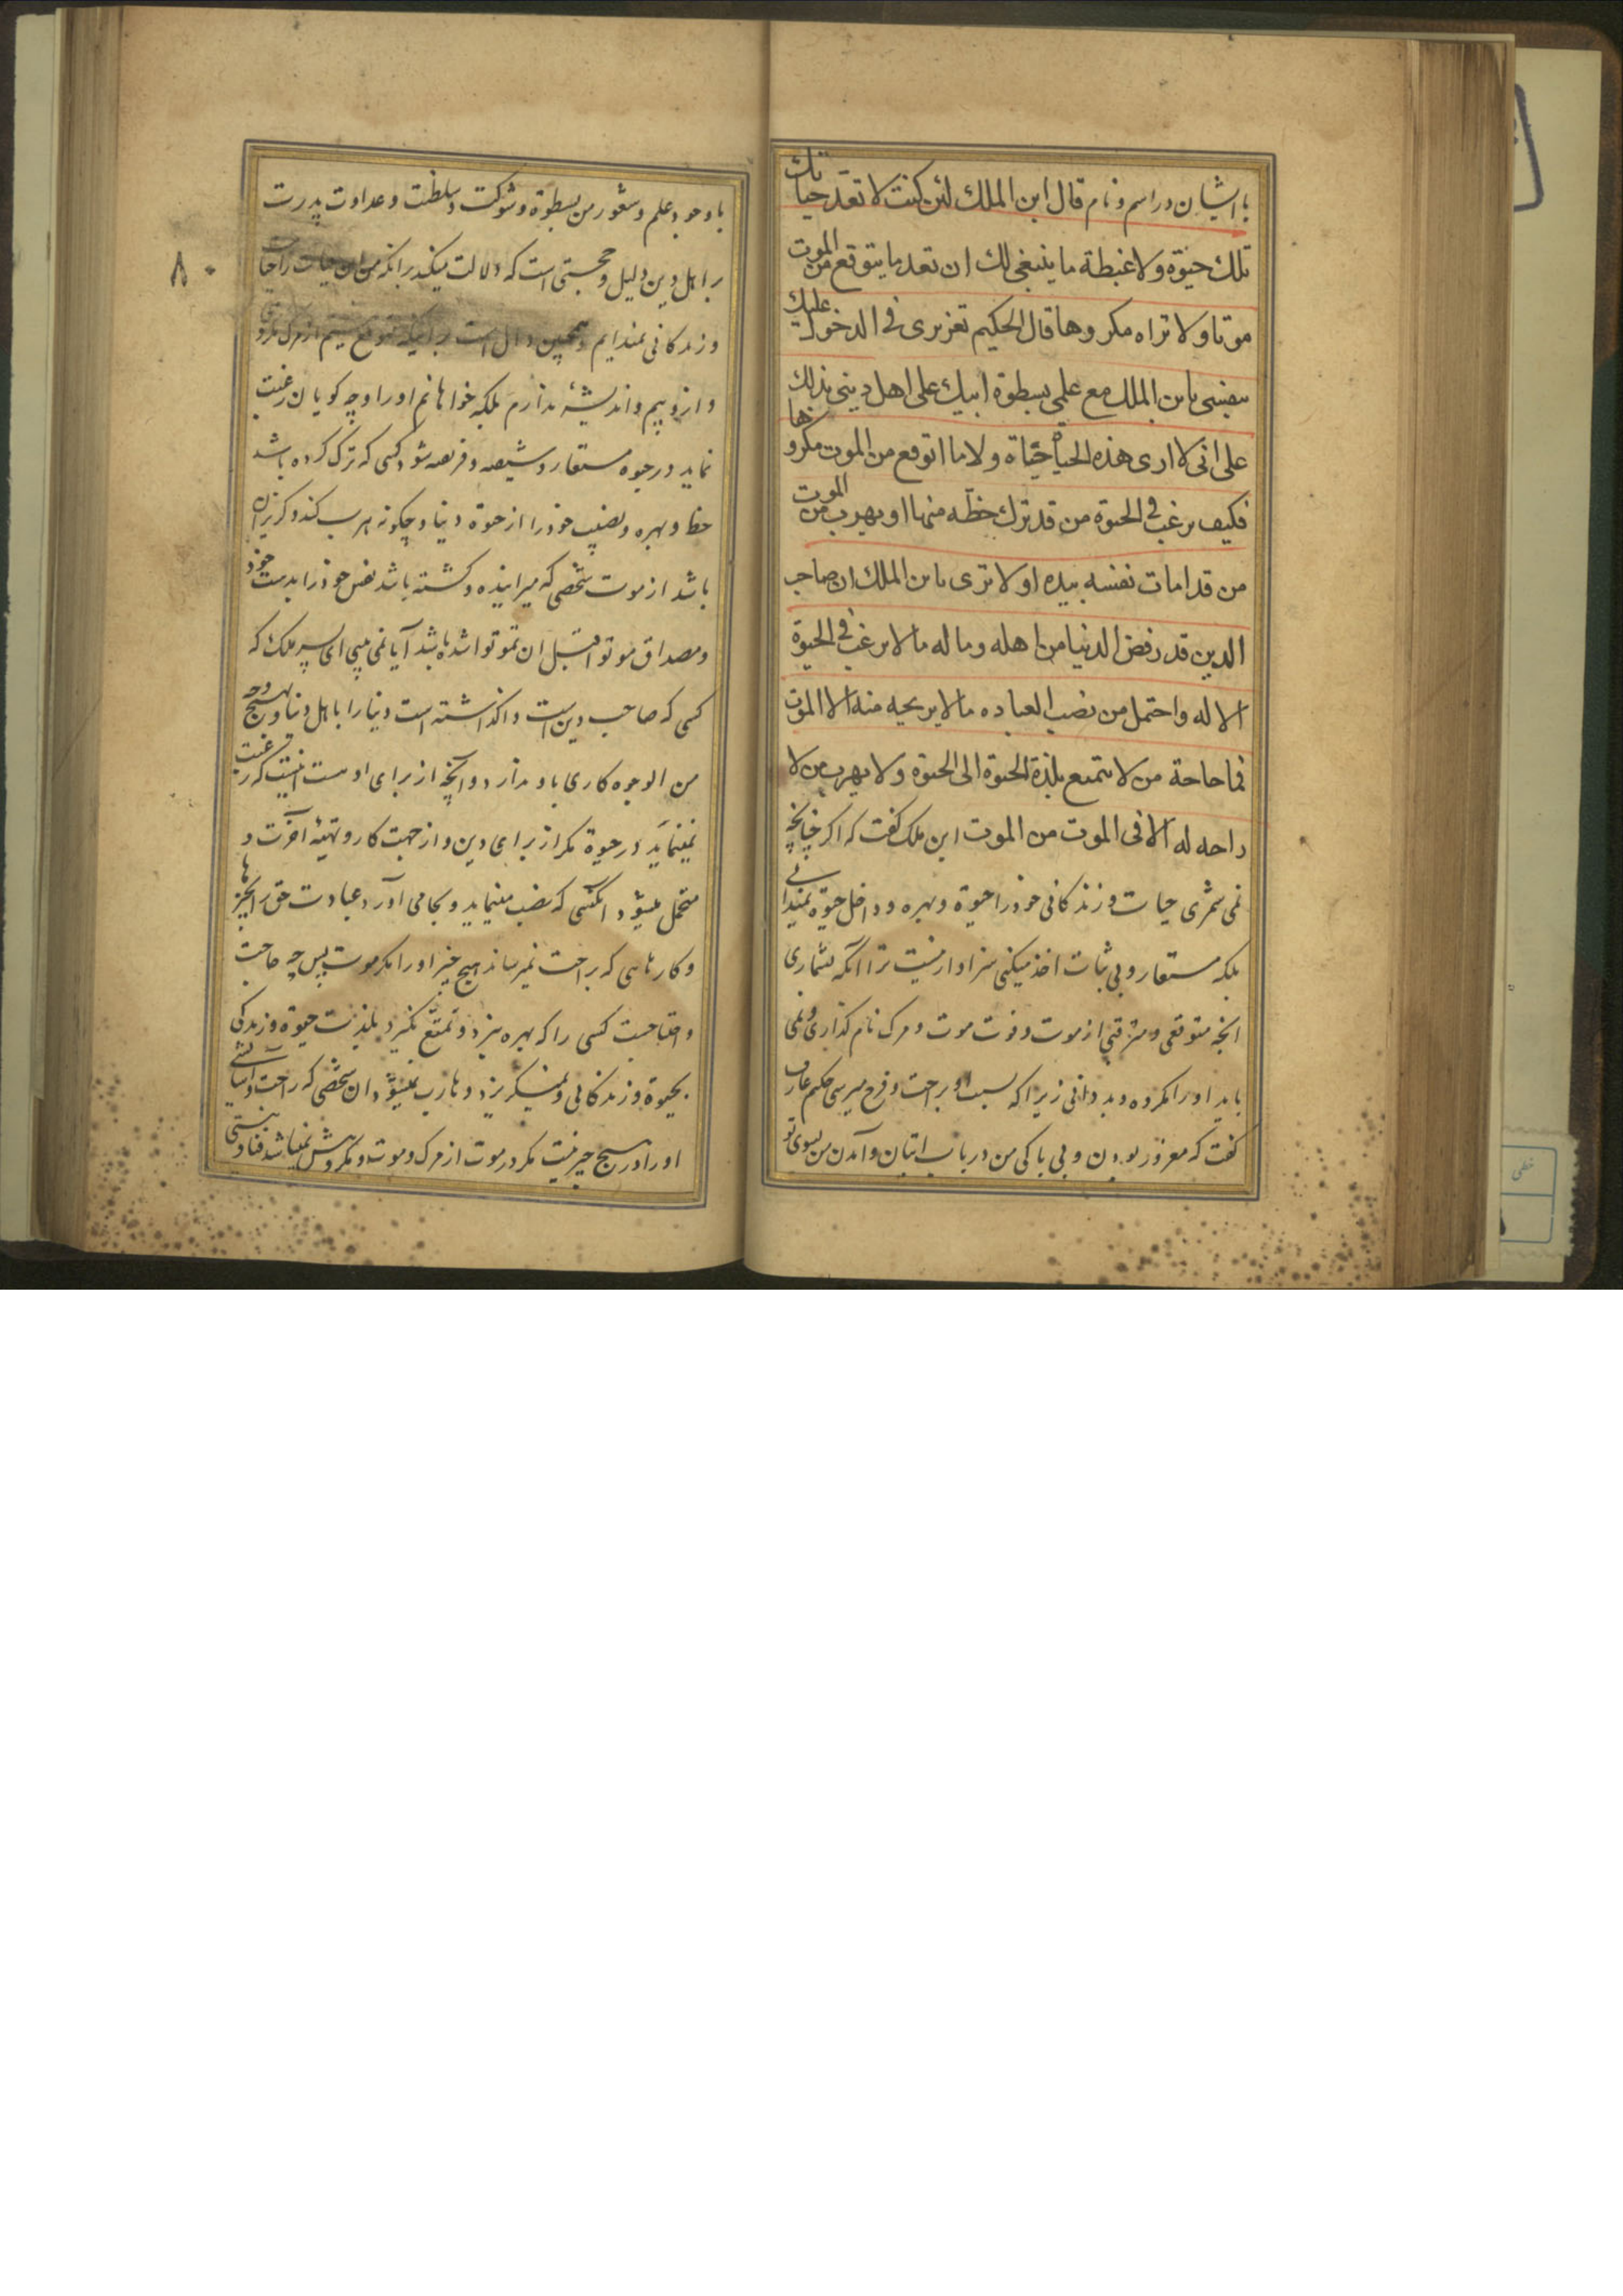 با ایشان در اسم و نام قال ابن الملك لئن كنت لا تعدّ حیاتك
تلك حیوة ولا غبطة ما ینبغی لك ان تعد ما یتوقع من الموت
موتا ولا تراه مكروها قال الحكیم تغزیری فی الدخول علیك
بنفسی یابن الملك مع علمی بسطوة ابیك علی اهل دینی یدلك
علی انی لا اری هذه الحیاة حیاة ولا ما اتوقع من الموت مكروها
فكیف یرغب فی الحیوة من قد ترك حظّه منها او یهرب من الموت
من قد امات نفسه بیده اولا تری یابن الملك ان صاحب
الدین قد رفض الدنیا من اهله وماله ما لا یرغب فی الحیوة
الا له واحتمل من نصب العباده ما لا یریحه منه الا الموت
فما حاجة من لا یتمتع بلذة الحیوة الی الحیوة ولا یهرب من لا
راحه له الا فی الموت من الموت ابن ملك كفت كه اكر چنانچه
نمی شمری حیات و زندكانی خود را حیوة و بهره و داخل حیوة نمیدانی
بلكه مستعار و بی ثبات اخذ میكنی سزاوار نیست ترا آنكه بشماری
آنچه متوقعی و مترقبی از موت و فوت موت و مرك نام كذاری و نمی
باید او را مكروه و بد دانی زیرا كه بسبب او براحت و فرح میرسی حكیم عارف
كفت كه مغرور بودن و بی باكی من در باب اتیان و آمدن من بسوی تو
۸۰
با وجود علم و شعور من بسطوة و شوكت و سلطنت و عداوت پدرت
بر اهل دین دلیل و حجتی است كه دلالت میكند بر آنكه من این حیات را حیات
و زندكانی نمیدانم و همچنین دال است بر اینكه متوقع نیستم از مرك مكروهی
و از و بیم و اندیشهٔ ندارم بلكه خواهانم او را و چه كویان رغبت
نماید در حیوة مستعار و شیفته و فریفته شود كسی كه ترك كرده باشد
حظ و بهره و نصیب خود را از حیوة دنیا و چكونه هرب كند و كریزان
باشد از موت شخصی كه میرانیده و كشته باشد نفس خود را بدست خود
و مصداق موتوا قبل ان تموتوا شده باشد آیا نمی بینی ای پسر ملك كه
كسی كه صاحب دین است واكذاشته است دنیا را با اهل دنیا و بهیچ وجه
من الوجوه كاری باو ندارد و آنچه از برای اوست اینست كه رغبت
نمینماید در حیوة مكر از برای دین و از جهت كار و تهیهٔ آخرت و
متحمل میشود آنكسی كه نصب مینماید و بجا می آورد عبادت حق را بچیزها
و كارهایی كه براحت نمیرساند هیچ چیز او را مكر موت پس چه حاجت
و احتیاجست كسی را كه بهره نبرد و تمتّع نكیرد بلذت حیوة و زندكی
بحیوة و زندكانی و نمیكریزد و هارب نمیشود آن شخصی كه راحت و آسایشی
او را در هیچ چیز نیست مكر در موت از مرك و موت و مكروهش نمیباشد فنا و نیستی